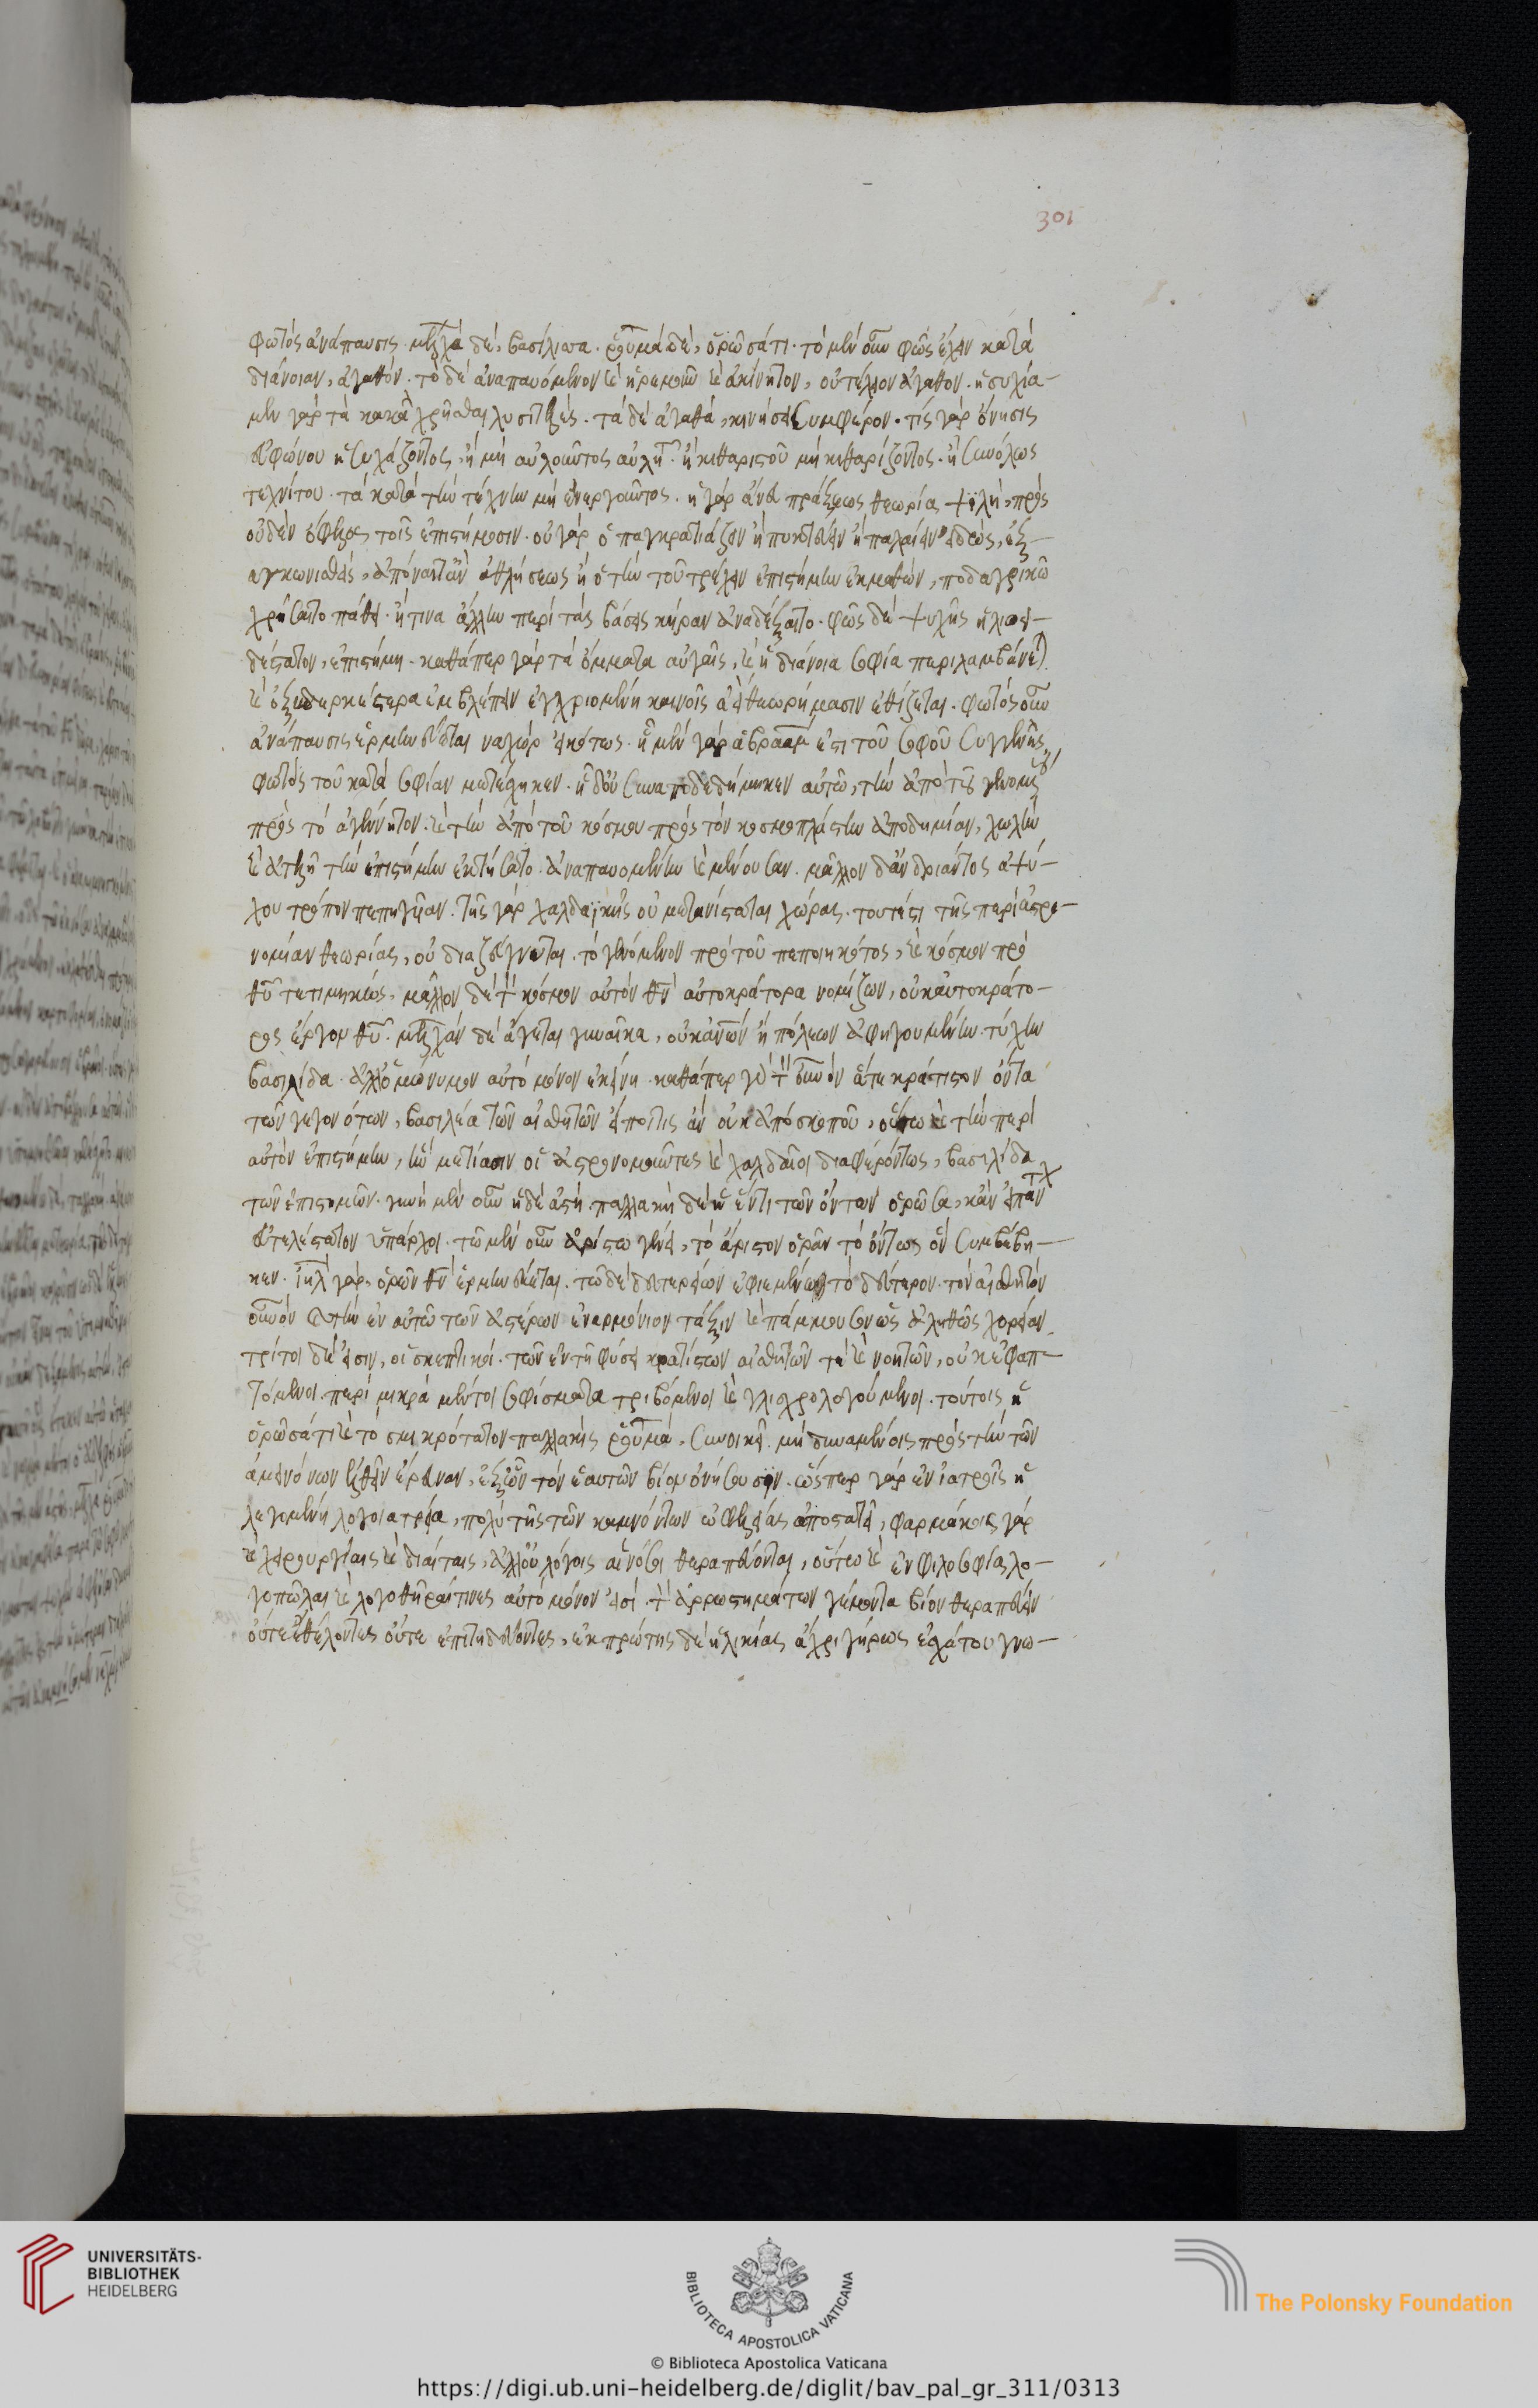 301
φωτὸς ἀνάπαυσις. μελχὰ δὲ, βασίλισσα. ῥουμὰ δὲ, ὁρῶσά τι. τὸ μὲν οὖν φῶς ἔχειν κατὰ
διάνοιαν, ἀγαθόν. τὸ δὲ ἀναπαυόμενον καὶ ἠρεμοῦν καὶ ἀκίνητον, οὐ τέλειον ἀγαθόν. ἡσυχία
μὲν γὰρ τὰ κακὰ χρῆσθαι λυσιτελές. τὰ δὲ ἀγαθὰ, κινήσει συμφέρον. τίς γὰρ ὄνησις
εὐφώνου ἡσυχάζοντος, ἢ μὴ αὐλοῦντος αὐλητοῦ. ἢ κιθαριστοῦ μὴ κιθαρίζοντος. ἢ συνόλως
τεχνίτου. τὰ κατὰ τὴν τέχνην μὴ ἐνεργοῦντος. ἡ γὰρ ἄνευ πράξεως θεωρία ψιλὴ, πρὸς
οὐδὲν ὄφελος τοῖς ἐπιστήμοσιν. οὐ γὰρ ὁ παγκρατιάζειν ἢ πυκτεύειν ἢ παλαίειν εἰδὼς, ἐξ-
αγκωνισθεὶς, ἀπόναιτ' ἂν ἀθλήσεως ἢ ὁ τὴν τοῦ τρέχειν ἐπιστήμην ἐκμαθὼν, ποδαγρικῷ
χρήσαιτο πάθει. ἤ τινα ἄλλην περὶ τὰς βάσεις κῆραν ἀναδέξαιτο. φῶς δὲ ψυχῆς ἡλιοει-
δέστατον, ἐπιστήμη. καθάπερ γὰρ τὰ ὄμματα αὐγαῖς, καὶ ἡ διάνοια σοφίᾳ περιλαμβάνεται.
καὶ ὀξυδερκέστερα ἐμβλέπειν ἐγχριομένη καινοῖς ἀεὶ θεωρήμασιν ἐθίζεται. φωτὸς οὖν
ἀνάπαυσις ἑρμηνεύεται ναχὼρ εἰκότως. ᾗ μὲν γὰρ ἀβραάμ ἐστι τοῦ σοφοῦ συγγενὴς,
φωτὸς τοῦ κατὰ σοφίαν μετέσχηκεν. ᾗ δ' οὐ συναποδεδήμηκεν αὐτῷ, τὴν ἀπὸ τοῦ γενομένου
πρὸς τὸ ἀγέννητον. καὶ τὴν ἀπὸ τοῦ κόσμου πρὸς τὸν κοσμοπλάστην ἀποδημίαν, χωλὴν
καὶ ἀτελῆ τὴν ἐπιστήμην ἐκτήσατο. ἀναπαυομένην καὶ μένουσαν. μᾶλλον δ' ἀνδριάντος ἀψύ-
χου τρόπον πεπηγυῖαν. τῆς γὰρ χαλδαϊκῆς οὐ μετανίσταται χώρας. τουτέστι τῆς περὶ ἀστρο-
νομίαν θεωρίας, οὐ διαζεύγνυται. τὸ γενόμενον πρὸ τοῦ πεποιηκότος, καὶ κόσμον πρὸ
θυ τετιμηκώς. μᾶλλον δὲ τὸν κόσμον αὐτὸν θν αὐτοκράτορα νομίζων, οὐκ αὐτοκράτο-
ρος ἔργον θυ. μελχὰν δὲ ἄγεται γυναῖκα, οὐκ ἀνων ἢ πόλεων ἀφηγουμένην τύχῃ
βασιλίδα. ἀλλ' ὁμώνυμον αὐτὸ μόνον ἐκείνῃ. καθάπερ γὰρ τὸν οὐνὸν ἅτε κράτιστον ὄντα
τῶν γεγονότων, βασιλέα τῶν αἰσθητῶν εἴποι τις ἂν οὐκ ἀπὸ σκοποῦ, οὕτω καὶ τὴν περὶ
αὐτὸν ἐπιστήμην, ἣν μετίασιν οἱ ἀστρονομοῦντες καὶ χαλδαῖοι διαφερόντως, βασιλίδα
τῶν ἐπιστημῶν. γυνὴ μὲν οὖν ἥδε ἀστή. παλλακὴ δὲ ἡ ἕν τι τῶν ὄντων ὁρῶσα, κἂν εἰ πάν
των
εὐτελέστατον ὑπάρχοι. τῷ μὲν οὖν ἀρίστῳ γένει, τὸ ἄριστον ὁρᾶν τὸ ὄντως ὂν συμβέβη-
κεν. ιηλ γὰρ, ὁρῶν θν ἑρμηνεύεται. τῷ δὲ δευτερείων ἐφιεμένῳ τὸ δεύτερον. τὸν αἰσθητὸν
οὐνὸν καὶ τὴν ἐν αὐτῷ τῶν ἀστέρων ἐναρμόνιον τάξιν καὶ πάμμουσον ὡς ἀληθῶς χορείαν.
τρίτοι δέ εἰσιν, οἱ σκεπτικοὶ. τῶν ἐν τῇ φύσει κρατίστων αἰσθητῶν τὲ καὶ νοητῶν, οὐκ ἐφαπ-
τόμενοι. περὶ μικρὰ μέντοι σοφίσματα τριβόμενοι καὶ γλισχρολογούμενοι. τούτοις ἡ
ὁρῶσά τι καὶ τὸ σμικρότατον παλλακὶς ῥουμὰ, συνοικεῖ. μὴ δυναμένοις πρὸς τὴν τῶν
ἀμεινόνων ἐλθεῖν ἔρευναν, ἐξ ὧν τὸν ἑαυτῶν βίον ὀνήσουσιν. ὥσπερ γὰρ ἐν ἰατροῖς ἡ
λεγομένη λογοϊατρεία, πολὺ τῆς τῶν καμνόντων ὠφελείας ἀποστατεῖ, φαρμάκοις γὰρ
καὶ χειρουργίαις καὶ διαίταις, ἀλλ' οὐ λόγοις αἱ νόσοι θεραπεύονται, οὕτω καὶ ἐν φιλοσοφίᾳ λο-
γοπῶλαι καὶ λογοθῆραί τινες αὐτὸ μόνον εἰσὶ. τὸν ἀρρωστημάτων γέμοντα βίον θεραπεύειν
οὔτε ἐθέλοντες οὔτε ἐπιτηδεύοντες, ἐκ πρώτης δὲ ἡλικίας ἄχρι γήρως ἐσχάτου γνω-
UNIVERSITÄTS-
BIBLIOTHEK
HEIDELBERG
BIBLIOTECA APOSTOLICA VATICANA
© Biblioteca Apostolica Vaticana
The Polonsky Foundation
https://digi.ub.uni-heidelberg.de/diglit/bav_pal_gr_311/0313